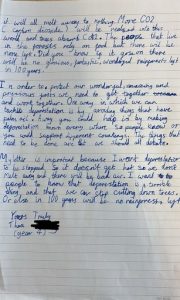 it will all melt away to nothing More CO2
(carbon dioxide) will be realised into this
world and soon about all. The people that live
in the forests rely on food but there will be
none left. Did you know by its grown there
will be no glorious, fantastic, wonderful rainforests left
in 100 years.
In order to protect our wonderful, amazing and
precious forests we need to get together
and work together. One way in which we can
stop deforestation is by avoiding things that have
palm oil. Away you could help is by making
deforestation more every where so people know or
you could support important charity's. The things that
need to be done are but we should all debate.
My letter is important because I want deforestation
to be stopped. So it doesn't get hot so we don't
melt away and there will be bad air. I want
people to know that deforestation is a terrible
thing and that we can stop cutting down trees.
Or else in 100 years will be no rainforests left
Yours Truly
Thea
(year 4)